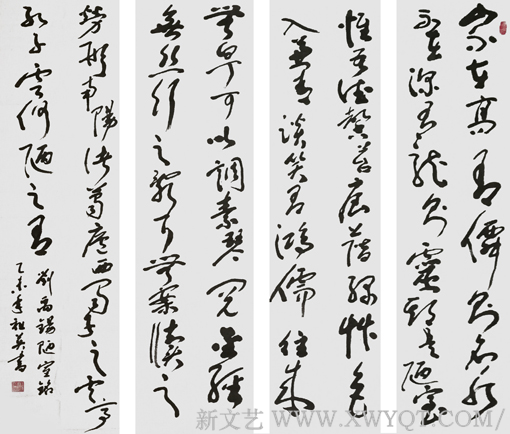 山不在高有僊則名水
不在深有龍則靈斯是陋室
惟吾德馨苔痕上階綠草色
入簾青談笑有鴻儒往來
無白丁可以調素琴閱金經
無絲竹之亂耳無案牘之
勞形南陽諸葛廬西蜀子雲亭
孔子云何陋之有
劉禹錫陋室銘
乙未年祖英書
新文艺 WWW.XWYQT.COM/